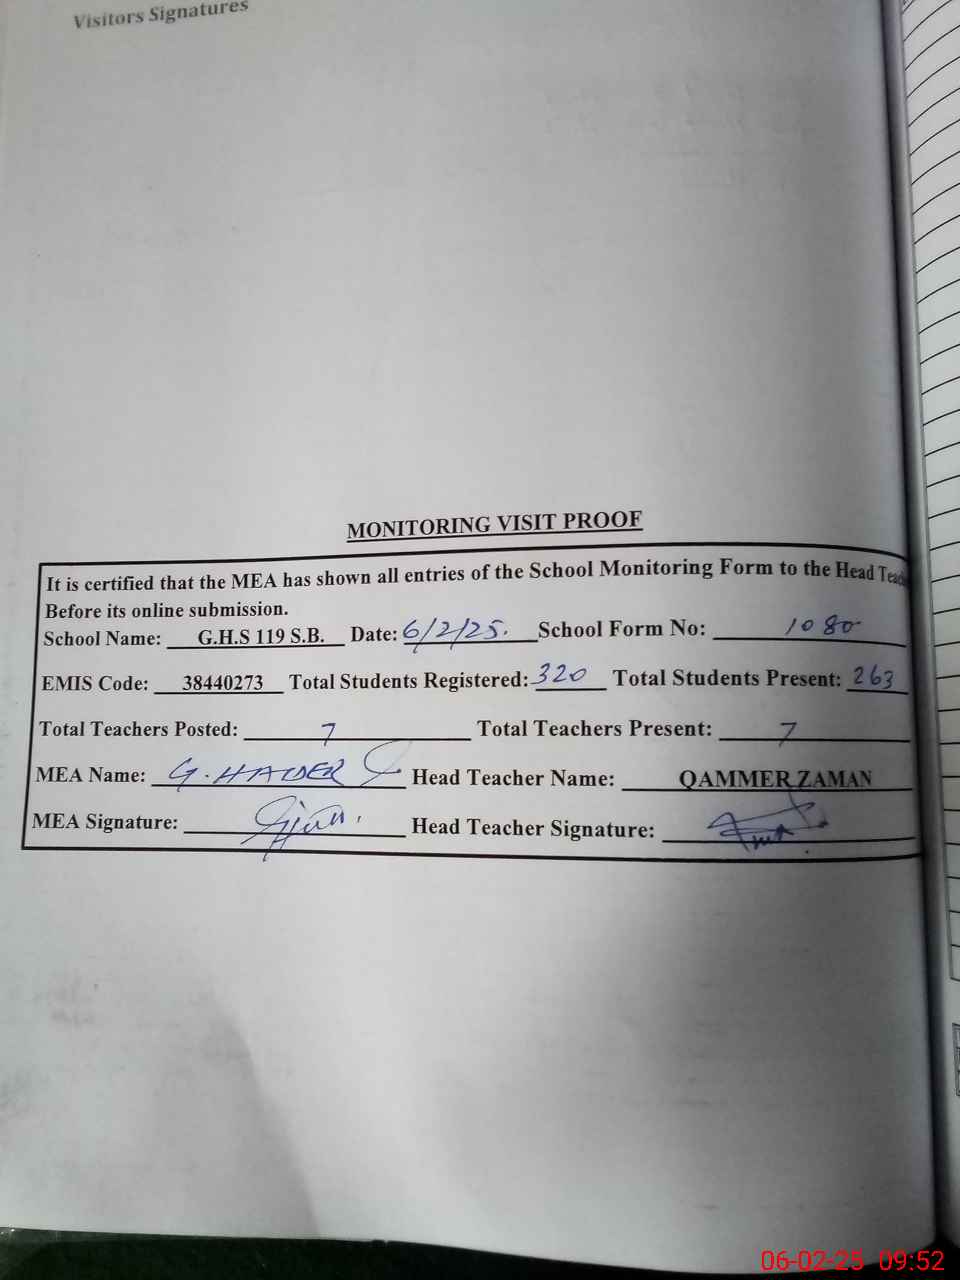 Visitors Signatures
MONITORING VISIT PROOF
It is certified that the MEA has shown all entries of the School Monitoring Form to the Head Teac
Before its online submission.
School Name: G.H.S 119 S.B. Date: 6/2/25. School Form No: 1080
EMIS Code: 38440273 Total Students Registered: 320 Total Students Present: 263
Total Teachers Posted: 7 Total Teachers Present: 7
MEA Name: G. HAIDER Head Teacher Name: QAMMER ZAMAN
MEA Signature: Head Teacher Signature:
06-02-25 09:52